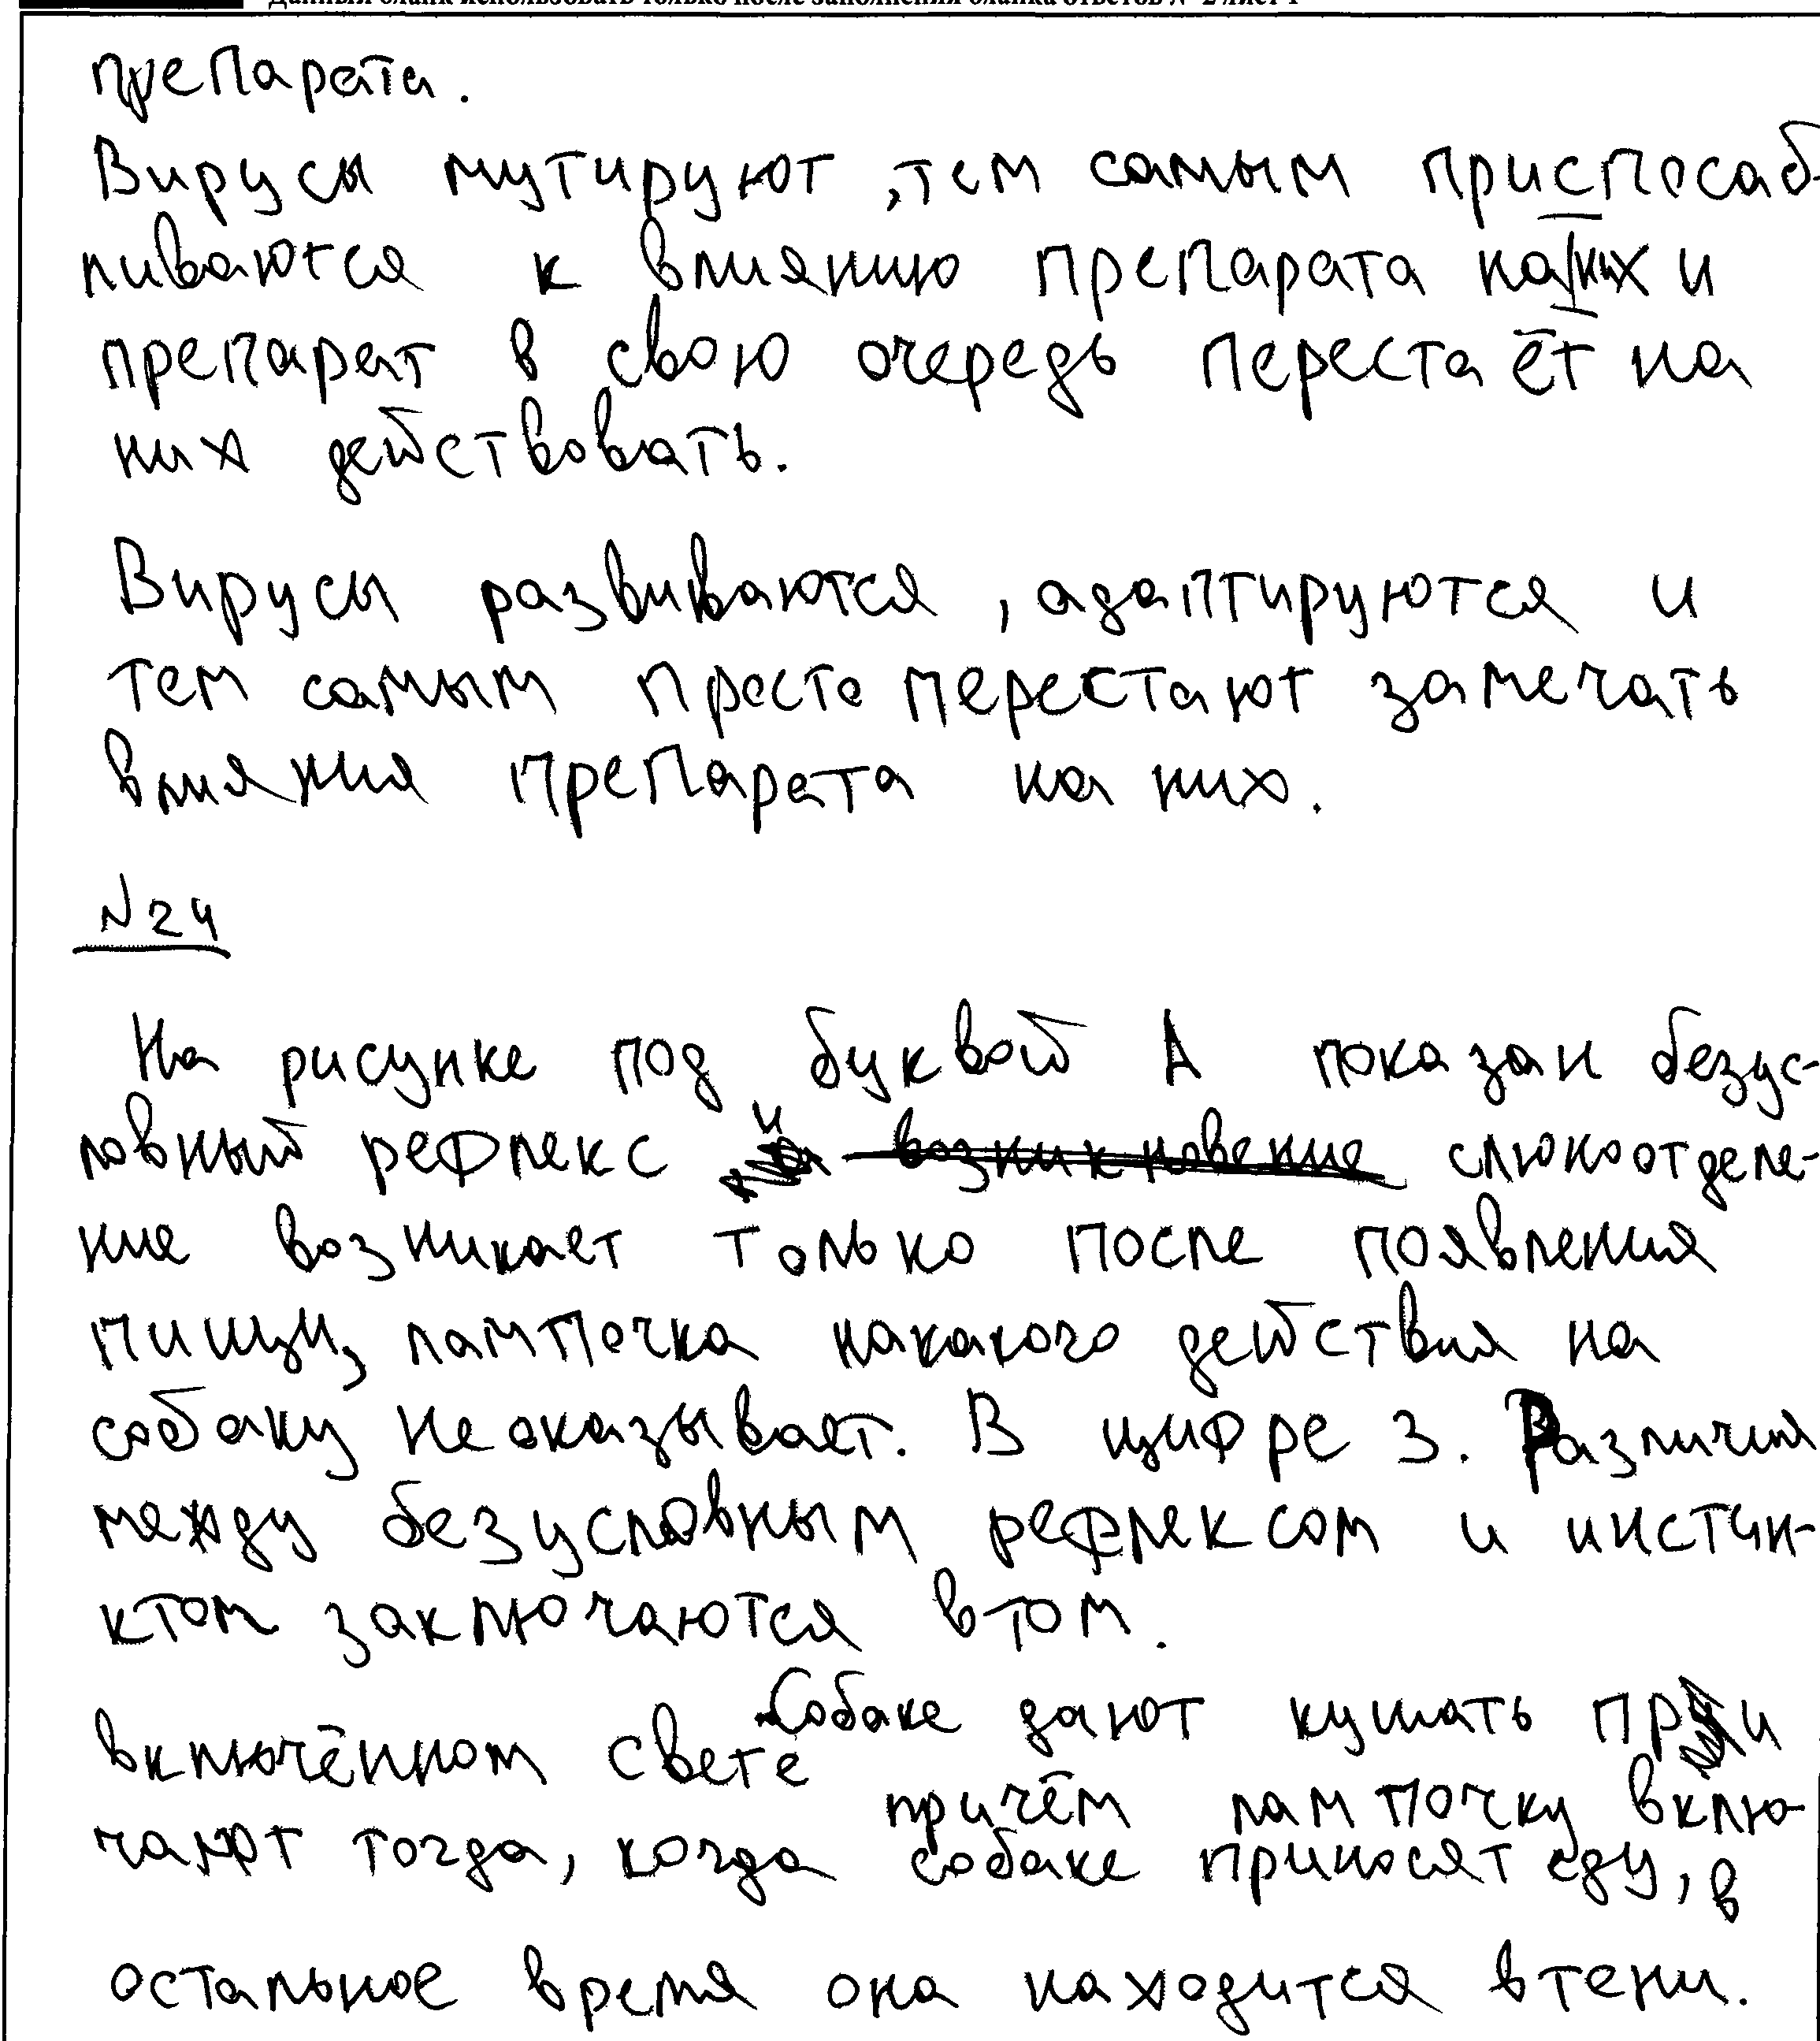 Данный бланк использовать только после заполнения бланка ответов № 2 лист 1
препарата.
Вирусы мутируют, тем самым приспосаб-
ливаются к влиянию препарата на них и
препарат в свою очередь перестаёт на
них действовать.
Вирусы развиваются, адаптируются и
тем самым просто перестают замечать
влияния препарата на них.
№24
На рисунке под буквой А показан безус-
ловный рефлекс и возникновение слюноотделе-
ние возникает только после появления
пищи, лампочка накакого действия на
собаку не оказывает. В цифре 3. Различия
между безусловным рефлексом и инстин-
ктом заключаются в том.
Собаке дают кушать при
включённом свете причём лампочку вклю-
чают тогда, когда собаке приносят еду, в
остальное время она находится в тени.